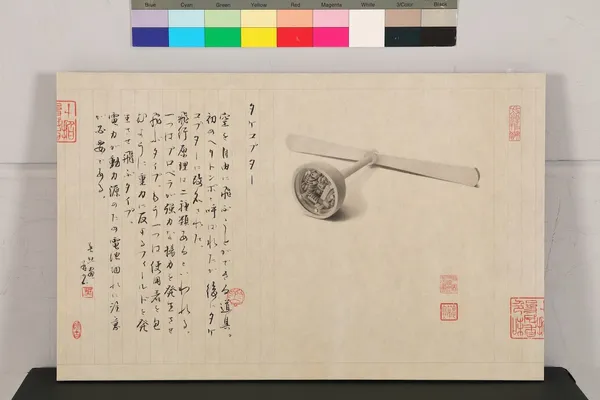 Blue Cyan Green Yellow Red Magenta White 3/Color Black
タケコプター
空を自由に飛ぶことができる道具。
初めヘリトンボと呼ばれたが後にタケ
コプターに改名された。
飛行原理は二種類あるといわれる。
一つはプロペラが強力な揚力を発生させ
飛ぶタイプ、もう一つは使用者を包
むように重力に反するフィールドを発
生させ飛ぶタイプ。
電力が動力源のため電池切れに注意
が必要である。